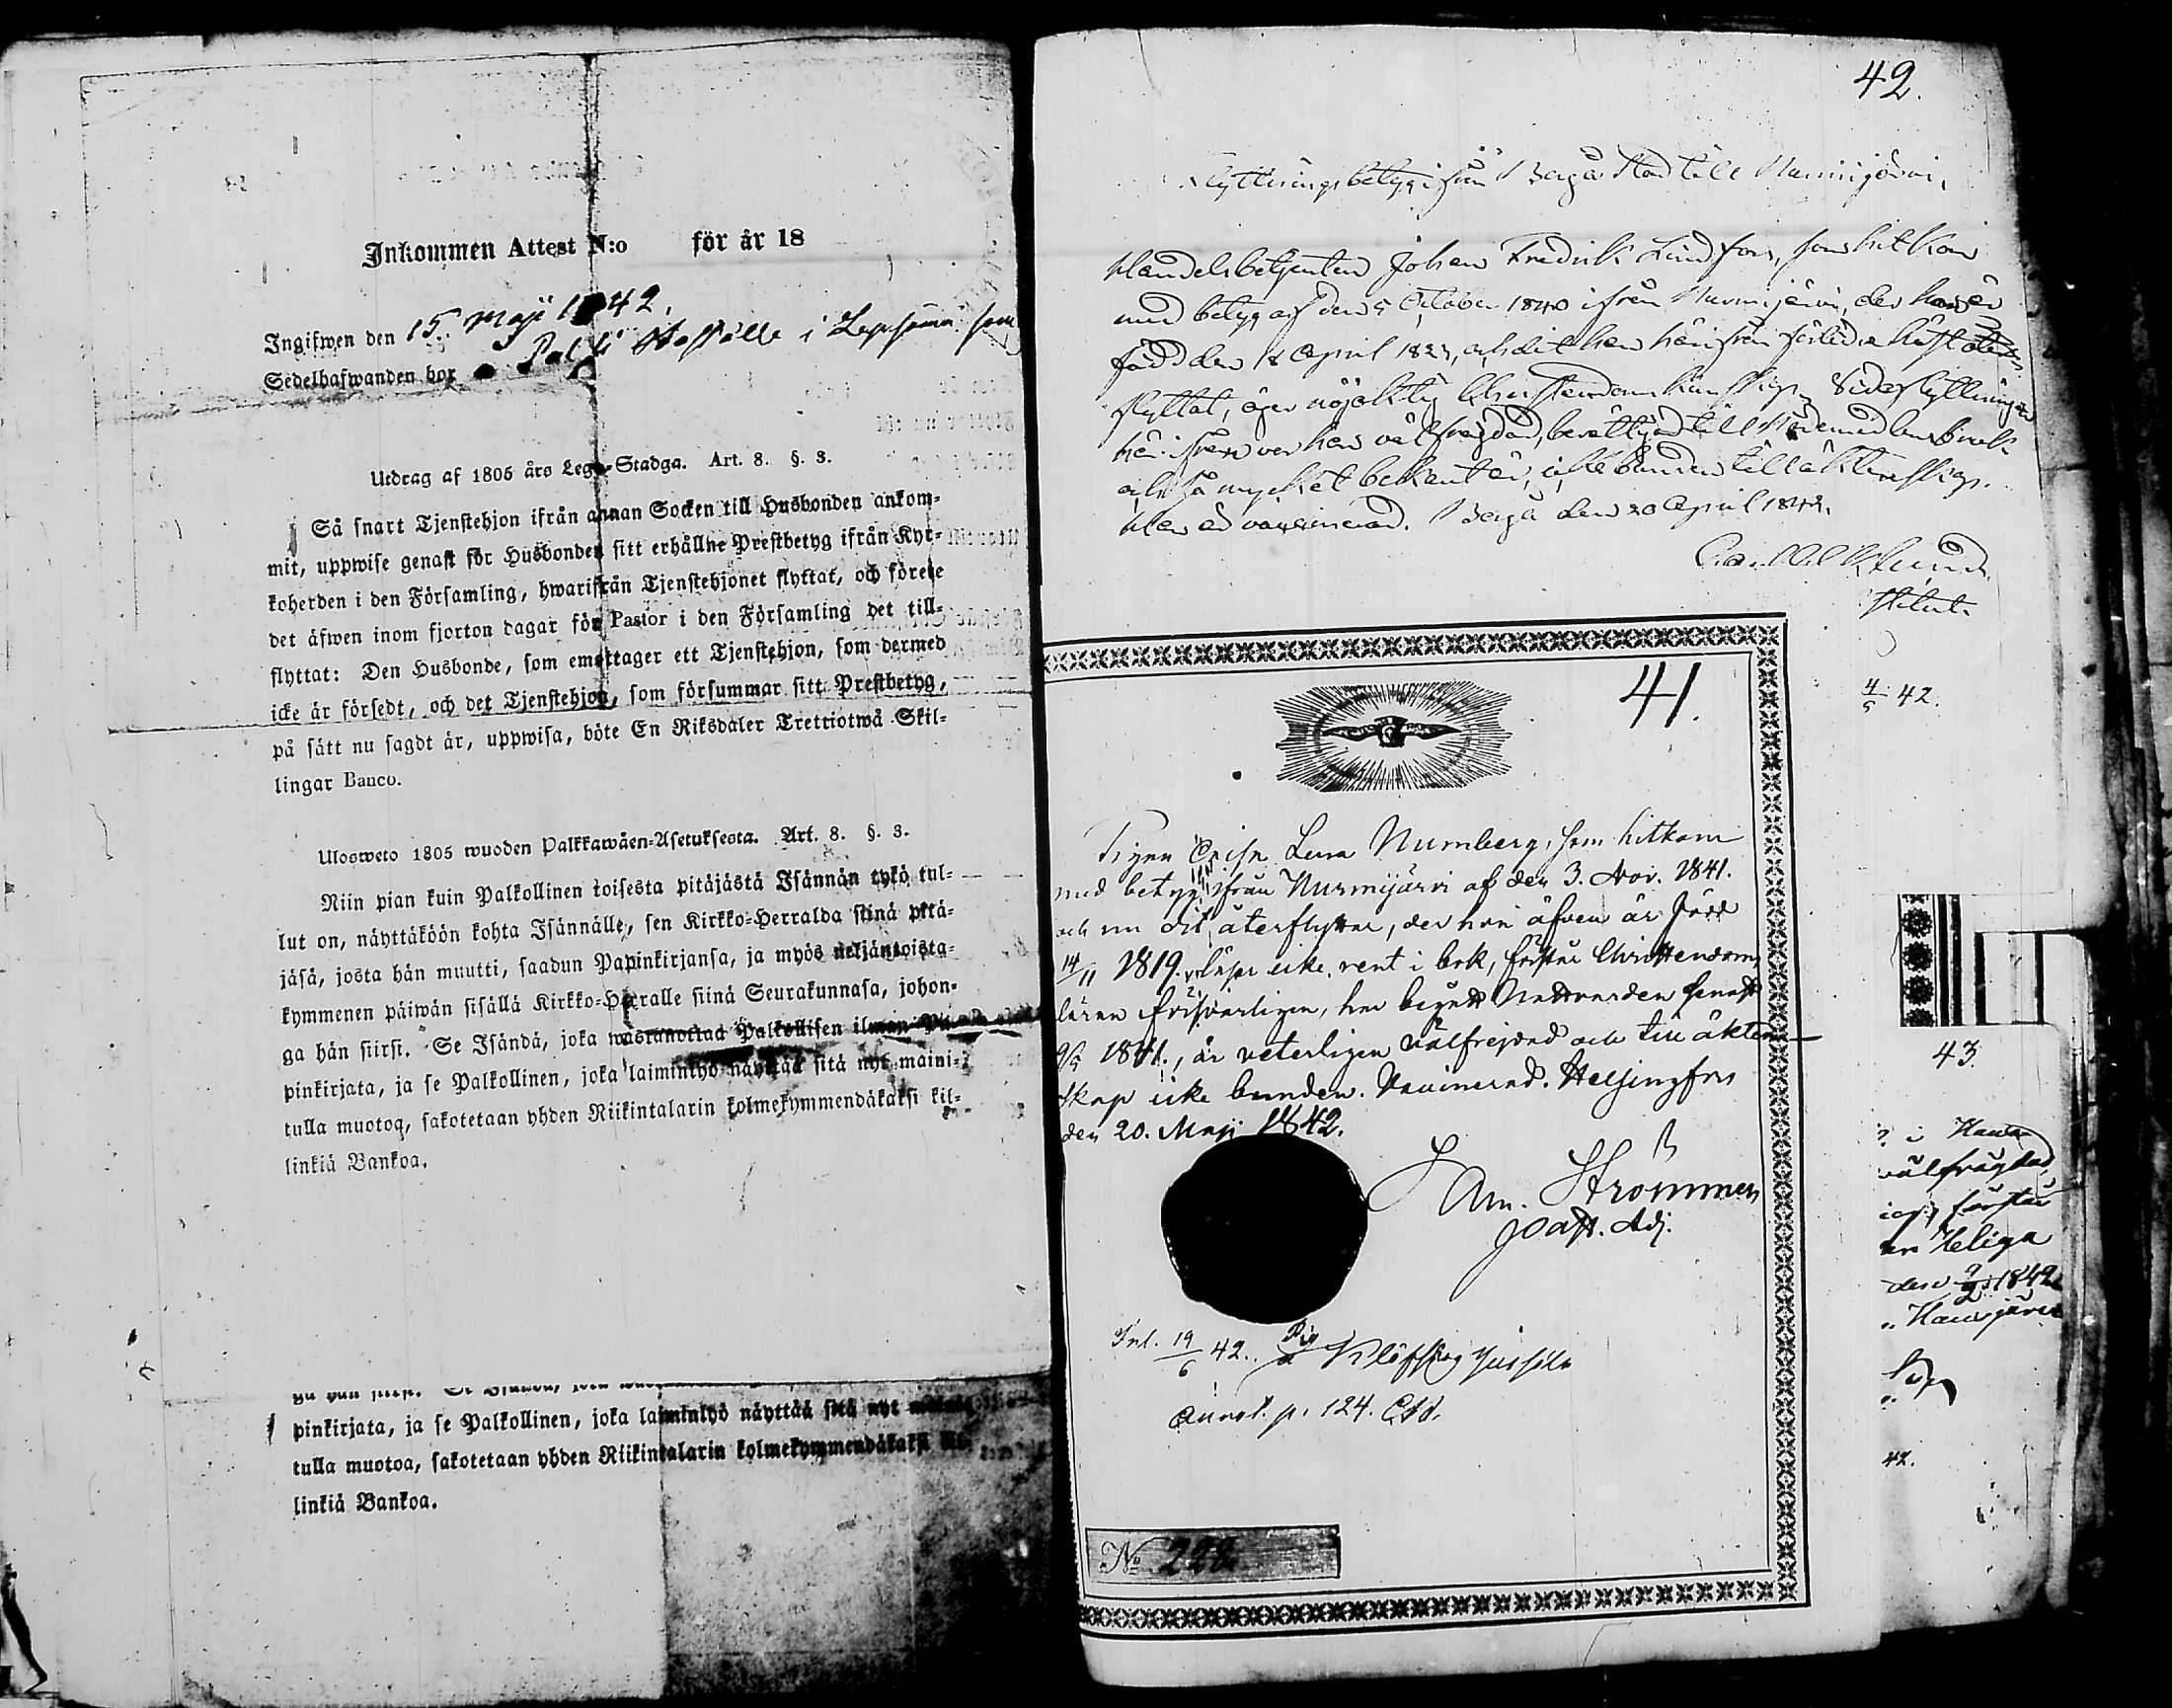 Inkommen Attest N:o för år 18
Ingifwen den 15. Maji 1842.
Sedelhafwanden bor i Lepsämä som
Utdrag af 1805 års Lego-Stadga. Art. 8. §. 3.
Så snart Tjenstehjon ifrån annan Socken till Husbonden ankom-
mit, uppwise genast för Husbonden sitt erhållne Prestbetyg ifrån Kyr-
koherden i den Församling, hwarifrån Tjenstehjonet flyttat, och förete
det äfwen inom fjorton dagar för Pastor i den Församling det till-
flyttat: Den Husbonde, som emottager ett Tjenstehjon, som dermed
icke är försedt, och det Tjenstehjon, som försummar sitt Prestbetyg,
på sätt nu sagdt är, uppwisa, böte En Riksdaler Trettiotwå Skil-
lingar Banco.
Ulosweto 1805 wuoden Palkkawäen-Asetuksesta. Art. 8. §. 3.
Niin pian kuin Palkollinen toisesta pitäjästä Isännän tykö tul-
lut on, näyttäköön kohta Isännälle, sen Kirkko-Herralda siinä pitä-
jäsä, josta hän muutti, saadun Papinkirjansa, ja myös neljäntoista-
kymmenen päiwän sisällä Kirkko-Herralle siinä Seurakunnasa, johon-
ga hän siirsi. Se Isändä, joka wastanottaa Palkollisen ilman Pa-
pinkirjata, ja se Palkollinen, joka laiminlyö näyttää sitä nyt maini-
tulla muotoa, sakotetaan yhden Riikintalarin kolmekymmendäkaksi kil-
linkiä Bankoa.
pinkirjata, ja se Palkollinen, joka laiminlyö näyttää sitä nyt
tulla muotoa, sakotetaan yhden Riikintalarin kolmekymmendäkaksi
linkiä Bankoa.
42.
Flyttningsbetyg ifrån Borgå Stad till Nurmijärvi.
Handelsbetjenten Johan Fredrik Lindfors, som hit kom
med betyg af den 5 October 1840 ifrån Nurmijärvi, der han är
född den 18 April 1823, och dit han härifrån förlidne höst
flyttat, äger nöjaktig Christendoms kunskap. Vid afflyttningen
härifrån var han välfrejdad, berättigad till Nådemedlens bruk
och så mycket bekant är, icke bunden till äktenskap.
Han är vaccinerad. Borgå den 20 April 1842.
4/5 42.
41.
Pigan Lena Numberg, som hitkom
med betyg ifrån Nurmijärvi af den 3. Nov. 1841.
och nu dit återflyttar, der hon äfven är född
14/11 1819. läser icke rent i bok, förstår Christendoms
läran försvarligen, har begått Nattvarden senast
1841., är veterligen välfrejdad och till äkten-
skap icke bunden. Vaccinerad. Helsingfors
den 20. Maji 1842.
Am. Strömmer
Past. Adj.
Inl. 19/6 42. Klöfskog Jussila
Annot. p. 124.
No 228
43.
i Haus
välfrägdad,
förstår
Heliga
den 1842
Hausjärvi
42.